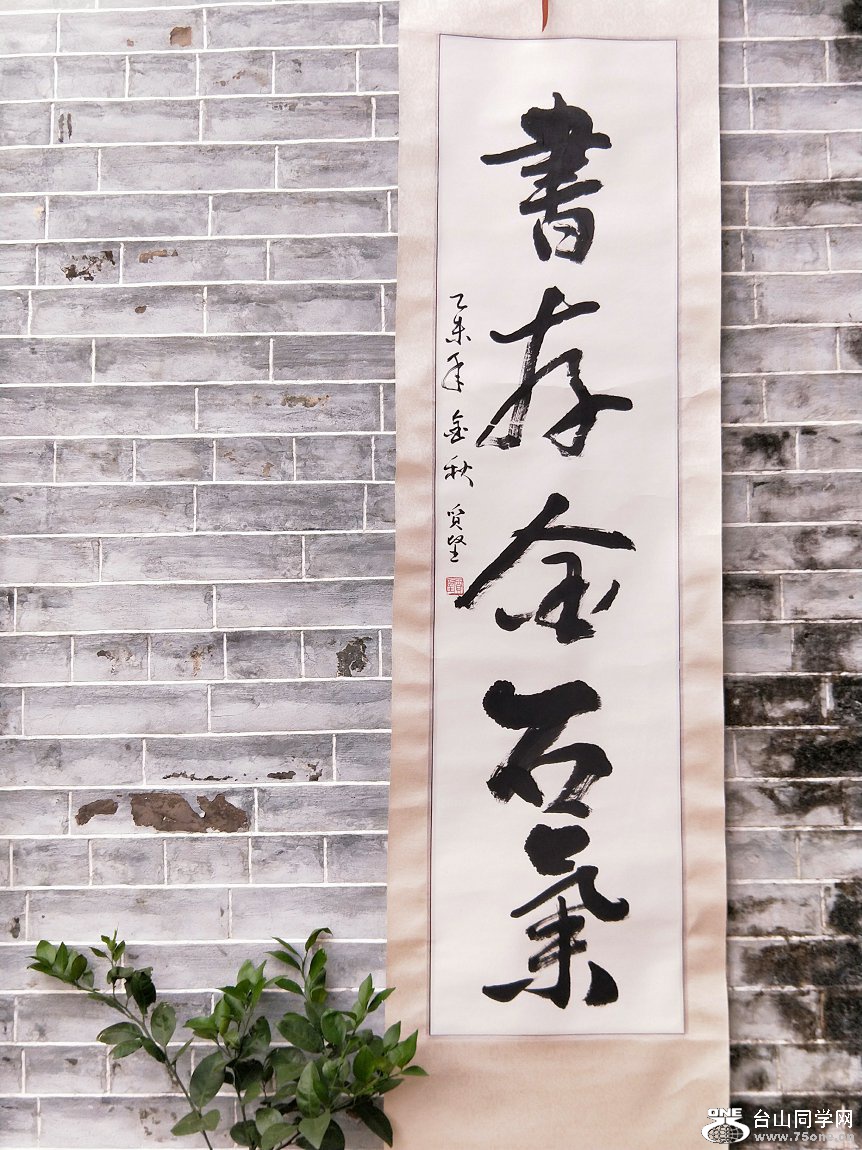 書存金石氣
乙未年金秋贤坚
ONE
台山同学网
www.75one.cn